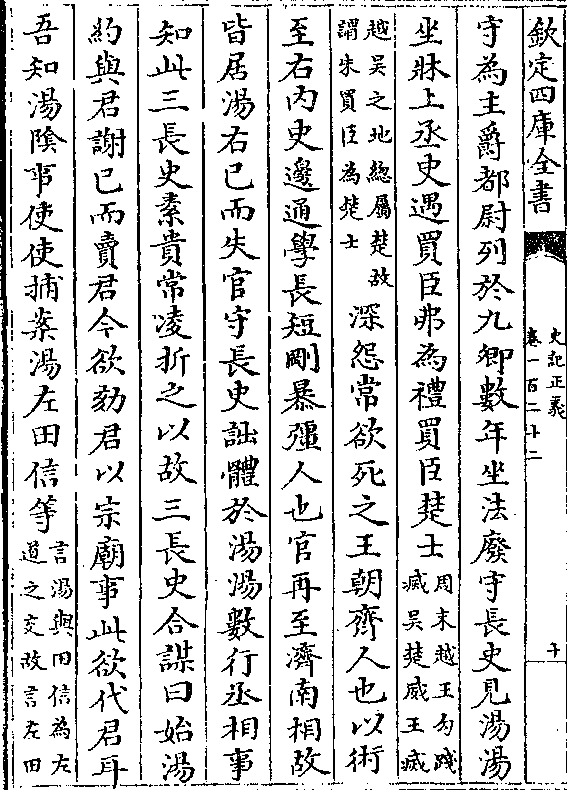 欽定四庫全書
史記正義
卷一百二十二
十
守為主爵都尉列於九卿數年坐法廢守長史見湯湯
坐牀上丞史遇買臣弗為禮買臣楚士周末越王勾踐
滅吳楚威王滅
越吳之地總屬楚故
謂朱買臣為楚士深怨常欲死之王朝齊人也以術
至右內史邊通學長短剛暴彊人也官再至濟南相故
皆居湯右已而失官守長史詘體於湯湯數行丞相事
知此三長史素貴常凌折之以故三長史合謀曰始湯
約與君謝已而賣君今欲劾君以宗廟事此欲代君耳
吾知湯陰事使使捕案湯左田信等言湯與田信為左
道之交故言左田